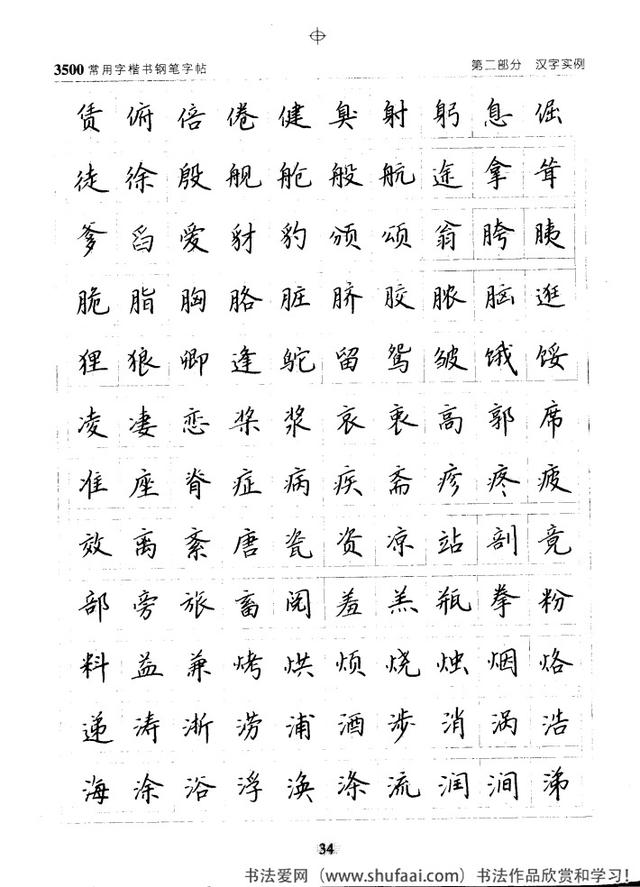 3500常用字楷书钢笔字帖 第二部分 汉字实例
赁 俯 倍 倦 健 臭 射 躬 息 倔
徒 徐 殷 舰 舱 般 航 途 拿 耸
爹 舀 爱 豺 豹 颁 颂 翁 胯 胰
脆 脂 胸 胳 脏 脐 胶 脓 脑 逛
狸 狼 卿 逢 鸵 留 鸳 皱 饿 馁
凌 凄 恋 桨 浆 哀 衷 高 郭 席
准 座 脊 症 病 疾 斋 疹 疼 疲
效 离 紊 唐 瓷 资 凉 站 剖 竞
部 旁 旅 畜 阅 羞 羔 瓶 拳 粉
料 益 兼 烤 烘 烦 烧 烛 烟 烙
递 涛 浙 涝 浦 酒 涉 消 涡 浩
海 涂 浴 浮 涣 涤 流 润 涧 涕
34
书法爱网（www.shufaai.com）书法作品欣赏和学习！